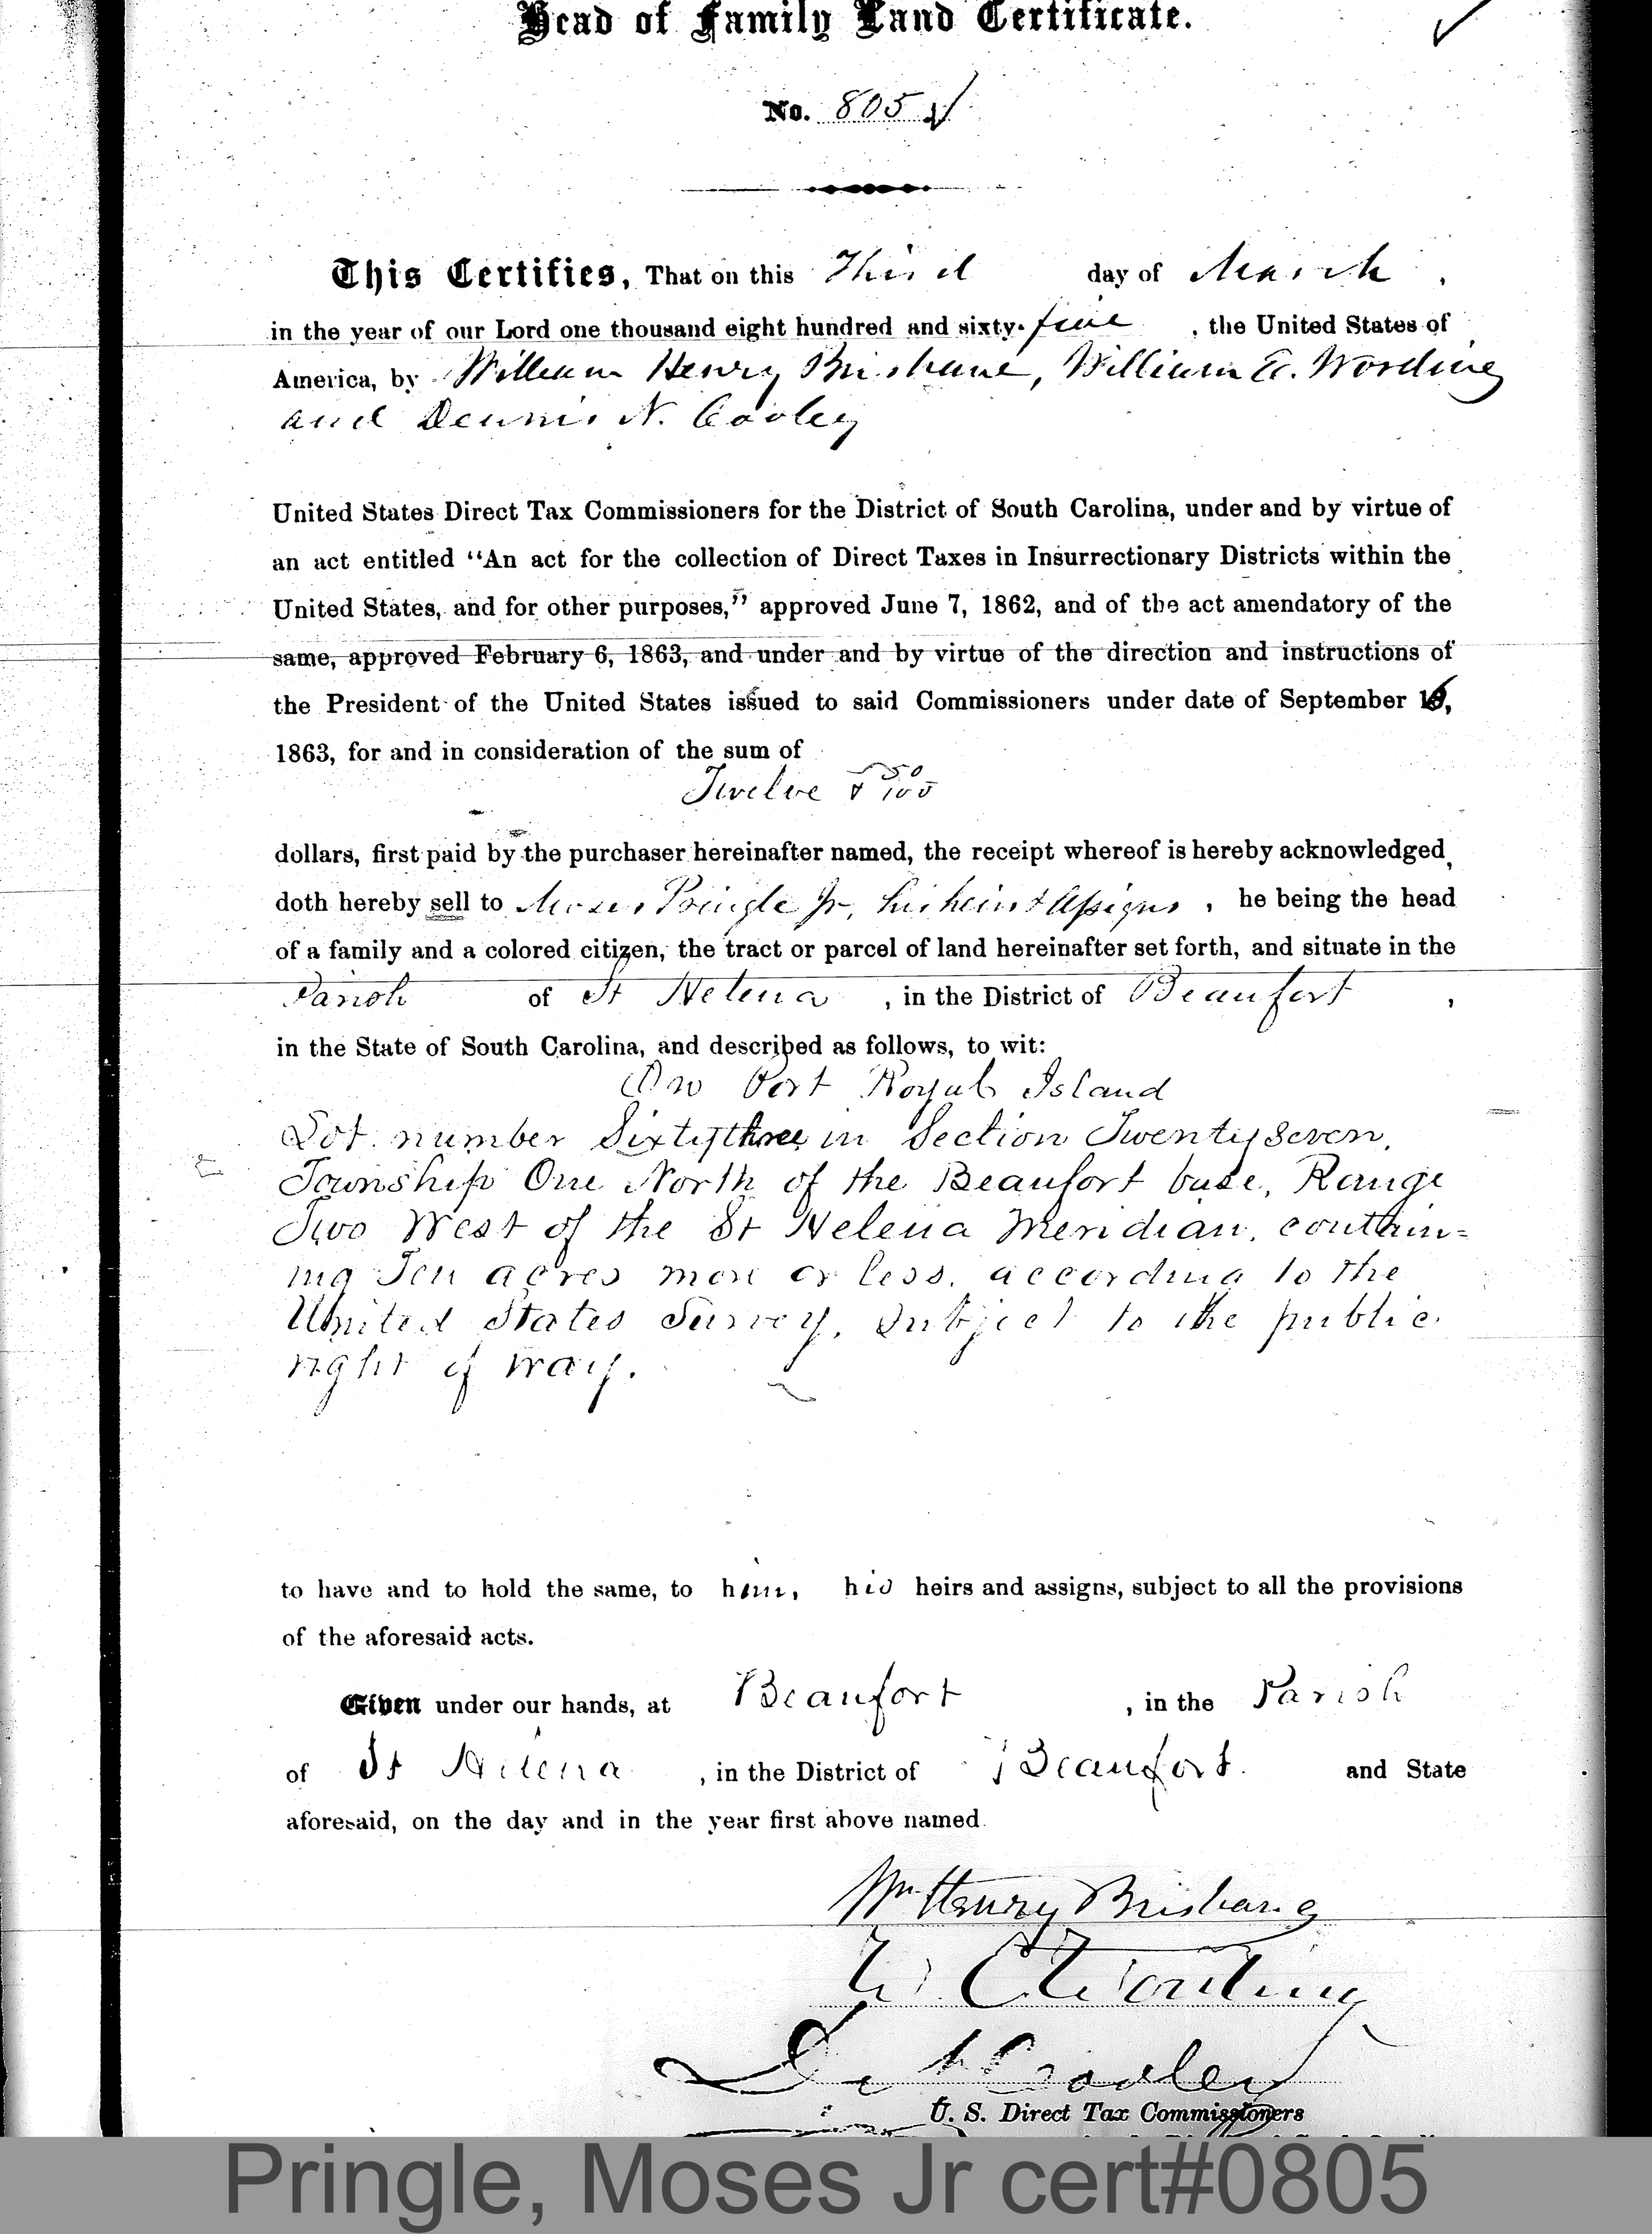 Head of Family Land Certificate.
No. 805
This Certifies, That on this Third day of March,
in the year of our Lord one thousand eight hundred and sixty-five, the United States of
America, by William Henry Brisbane, William E. Wording
and Dennis N. Cooley
United States Direct Tax Commissioners for the District of South Carolina, under and by virtue of
an act entitled “An act for the collection of Direct Taxes in Insurrectionary Districts within the
United States, and for other purposes,” approved June 7, 1862, and of the act amendatory of the
same, approved February 6, 1863, and under and by virtue of the direction and instructions of
the President of the United States issued to said Commissioners under date of September 16,
1863, for and in consideration of the sum of
Twelve & 50/100
dollars, first paid by the purchaser hereinafter named, the receipt whereof is hereby acknowledged,
doth hereby sell to Moses Pringle Jr, his heirs & assigns, he being the head
of a family and a colored citizen, the tract or parcel of land hereinafter set forth, and situate in the
Parish of St Helena, in the District of Beaufort,
in the State of South Carolina, and described as follows, to wit:
On Port Royal Island
Lot number Sixty three in Section Twenty seven,
Township One North of the Beaufort base, Range
Two West of the St Helena Meridian, contain=
ing Ten acres more or less, according to the
United States Survey, Subject to the public
right of way.
to have and to hold the same, to him, his heirs and assigns, subject to all the provisions
of the aforesaid acts.
Given under our hands, at Beaufort, in the Parish
of St Helena, in the District of Beaufort. and State
aforesaid, on the day and in the year first above named.
Wm Henry Brisbane
W. E. Wording
D. N. Cooley
U. S. Direct Tax Commissioners
Pringle, Moses Jr cert#0805